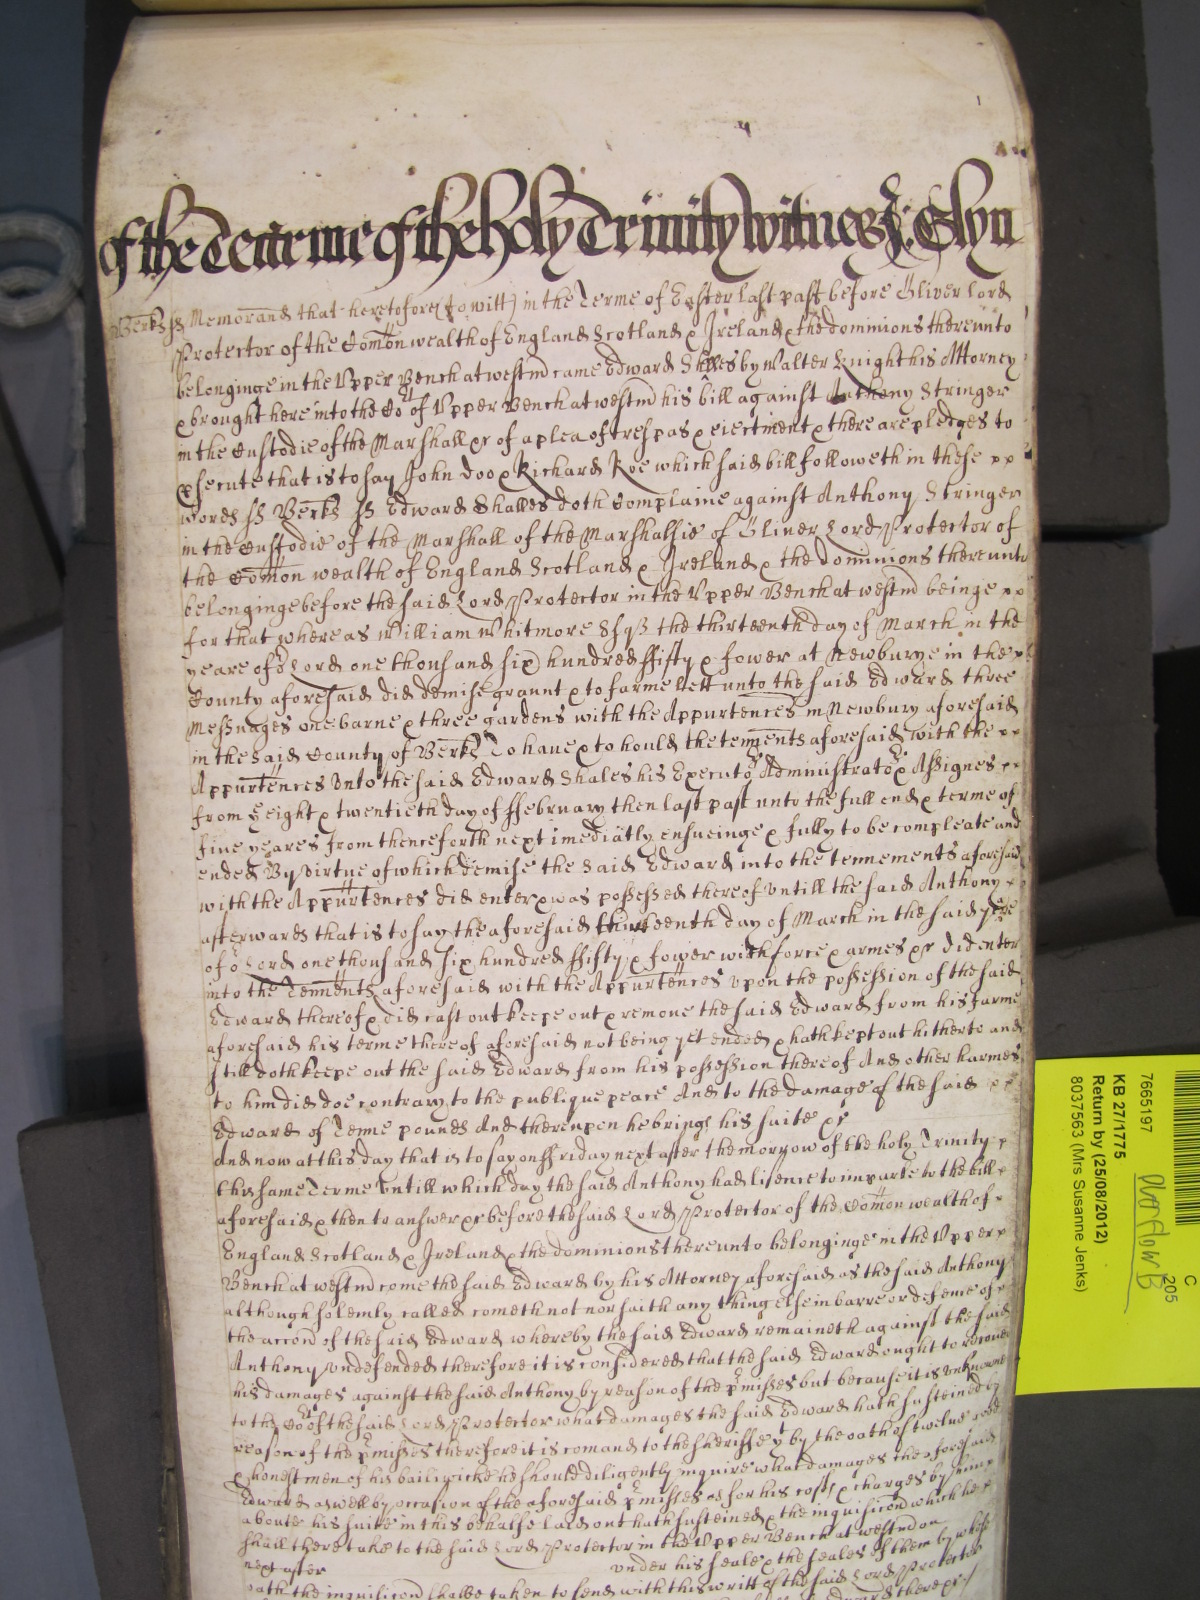 of the Tearme of the holy Trinity witnes J: Glyn
Berks ss Memorand that heretofore (to witt) in the Terme of Easter last past before Oliver lord
Protector of the Comon wealth of England Scotland & Ireland & the dominions thereunto
belonginge in the Upper Bench at westm came Edward Shales by Walter Knight his Attorney
& brought here into the Cot of Upper Bench at westm his bill against Anthony Stringer
in the Custodie of the Marshall &c of a plea of trespas & eiectment & there are pledges to
psecute that is to say John Doo & Richard Roe which said bill followeth in these
words ss Berks ss Edward Shalles doth Complaine against Anthony Stringer
in the Custodie of the Marshall of the Marshalsie of Oliver Lord Protector of
the Comon wealth of England Scotland & Ireland & the dominions thereunto
belonginge before the said Lord Protector in the Upper Bench at westm beinge
for that whereas William Whitmore Esq the thirteenth day of March in the
yeare of or Lord one thousand six hundred ffifty & fower at Newburye in the
County aforesaid did demise graunt & to farme lett unto the said Edward three
Messuages one barne & three gardens with the Appurtences in Newbury aforesaid
in the said County of Berks To haue & to hould the tements aforesaid with the
Appurtences unto the said Edward Shales his Executors Administrators & Assignes
from eight & twentieth day of ffebruary then last past unto the full end & terme of
fiue yeares from thenceforth next imediatly ensueinge & fully to be compleate and
ended By virtue of which demise the said Edward into the tennements aforesaid
with the Appurtences did enter & was possessed thereof untill the said Anthony
afterwards that is to say the aforesaid thirteenth day of March in the said yere
of or Lord one thousand six hundred ffifty & fower with force & armes &c did enter
into the Tements aforesaid with the Appurtences upon the possession of the said
Edward thereof & did cast out keepe out & remoue the said Edward from his farme
aforesaid his terme thereof aforesaid not being yet ended & hath kept out hitherto and
still doth keepe out the said Edward from his possession thereof And other harmes
to him did doe contrary to the publique peace And to the damage of the said
Edward of Tenne pounds And thereupon he brings his suite &c
And now at this day that is to say on ffriday next after the morrow of the holy Trinity
this same Terme untill which day the said Anthony had lisence to imparle to the bill
aforesaid & then to answer &c before the said Lord Protector of the Comon wealth of
England Scotland & Ireland & the dominions thereunto belonginge in the Upper
Bench at westm come the said Edward by his Attorney aforesaid as the said Anthony
although solemly called cometh not nor saith any thing else in barre or defence of
the accon of the said Edward whereby the said Edward remaineth against the said
Anthony undefended therefore it is considered that the said Edward ought to recouer
his damages against the said Anthony by reason of the pmisses but because it is unknowne
to the Cot of the said Lord Protector what damages the said Edward hath susteined by
reason of the pmisses therefore it is comand to the sheriffe yt by the oath of twelue good
& honest men of his bailiwicke he should diligently inquire what damages the aforesaid
Edward aswell by occasion of the aforesaid pmisses as for his costs & charges by him
aboute his suite in this behalfe laid out hath susteined & the inquisicon which he
shall there take to the said Lord Protector in the Upper Bench at westm on
next after under his seale & the seales of them by whose
oath the inquisicon shalbe taken to send with this writt of the said Lord Protector
7665197
KB 27/1775
Return by (25/08/2012)
8037563 (Mrs Susanne Jenks)
C
205